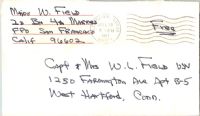 Major W. Field
2D Bn 4th Marines
FPO San Francisco
Calif 96602
Free
Capt & Mrs W. L. Field USN
1250 Farmington Ave Apt B-5
West Hartford, Conn.